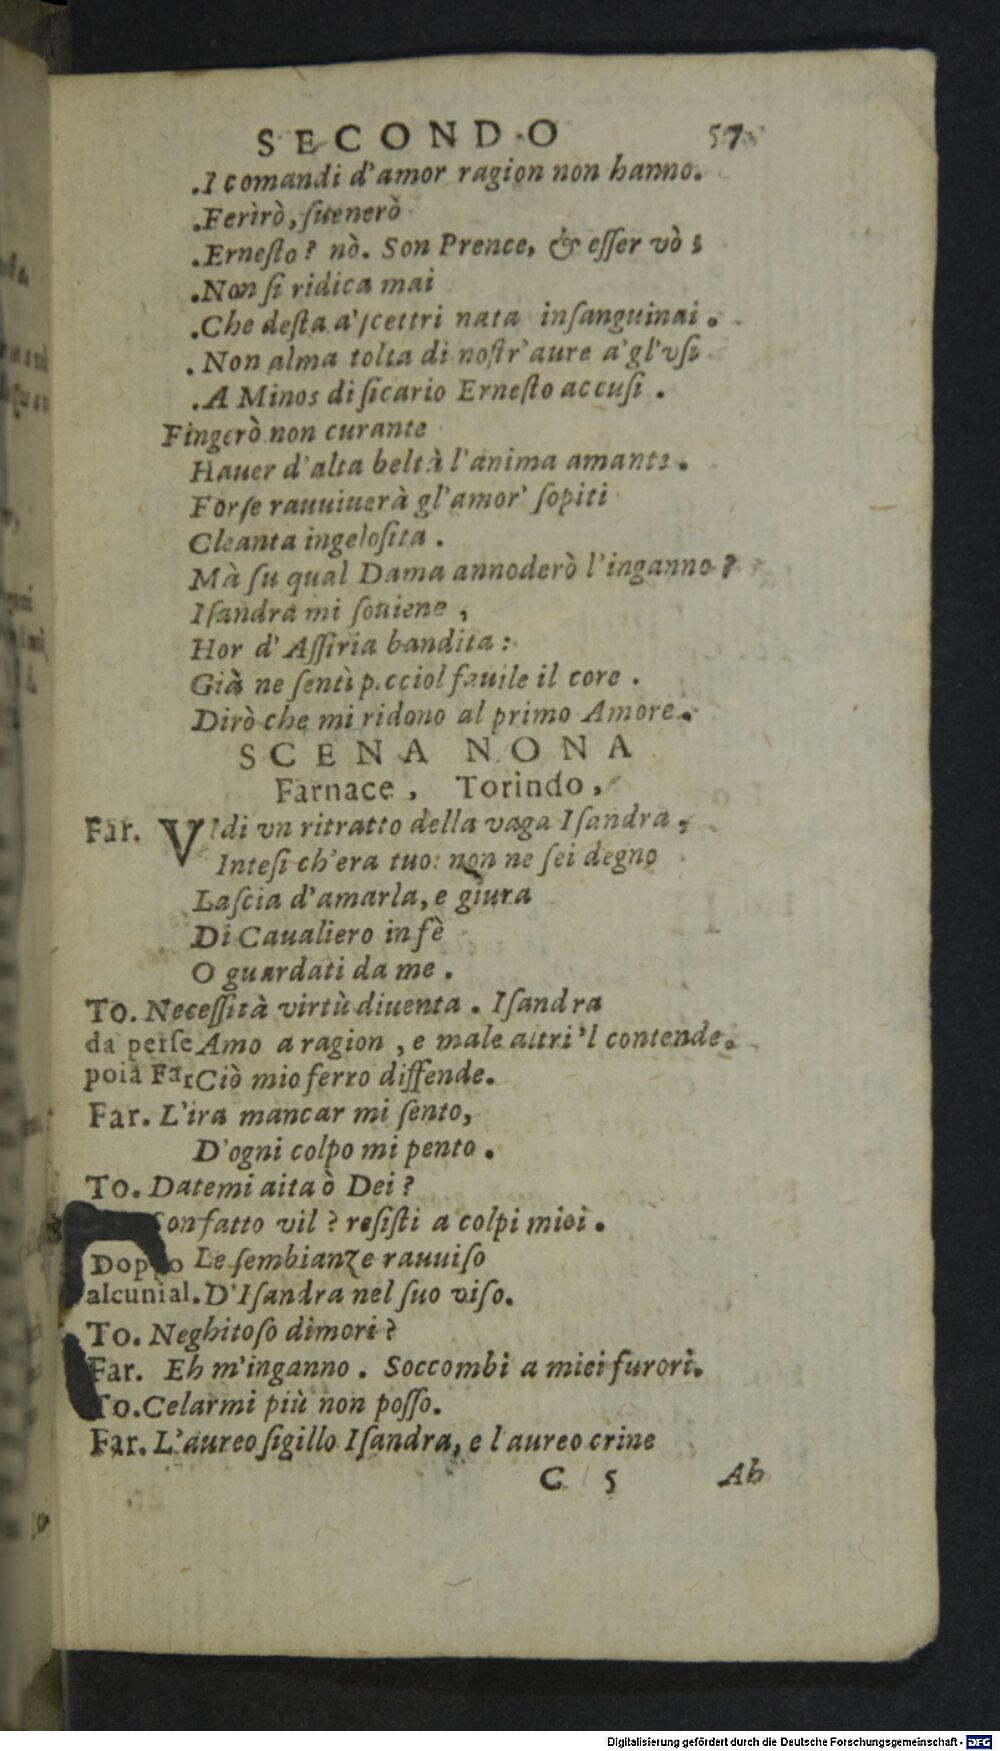 SECONDO 57
.I comandi d'amor ragion non hanno.
.Ferirò, ſuenerò
.Erneſto? nò. Son Prence, & eſſer vò;
.Non ſi ridica mai
.Che deſta a'ſcettri nata inſanguinai.
.Non alma tolta di noſtr'aure a'gl'vſi
.A Minos di ſicario Erneſto accuſi.
Fingerò non curante
Hauer d'alta beltà l'anima amante.
Forſe rauuiuerà gl'amor' ſopiti
Cleanta ingeloſita.
Mà ſu qual Dama annoderò l'inganno?
Iſandra mi ſouiene,
Hor d'Aſſiria bandita:
Già ne ſentì picciol fauile il core.
Dirò che mi ridono al primo Amore.
SCENA NONA
Farnace, Torindo,
Far. Vidi vn ritratto della vaga Iſandra,
Inteſi ch'era tuo: non ne ſei degno
Laſcia d'amarla, e giura
Di Caualiero in fè
O guardati da me.
To. Neceſſità virtù diuenta. Iſandra
da perſe Amo a ragion, e male altri'l contende.
poi a Far Ciò mio ferro diffende.
Far. L'ira mancar mi ſento,
D'ogni colpo mi pento.
To. Datemi aita ò Dei?
Son fatto vil? reſiſti a colpi miei.
Doppo Le ſembianze rauuiſo
alcuni al. D'Iſandra nel ſuo viſo.
To. Neghitoſo dimori?
Far. Eh m'inganno. Soccombi a miei furori.
To. Celarmi più non poſſo.
Far. L'aureo ſigillo Iſandra, e l'aureo crine
C 5 Ab
Digitalisierung gefördert durch die Deutsche Forschungsgemeinschaft - DFG